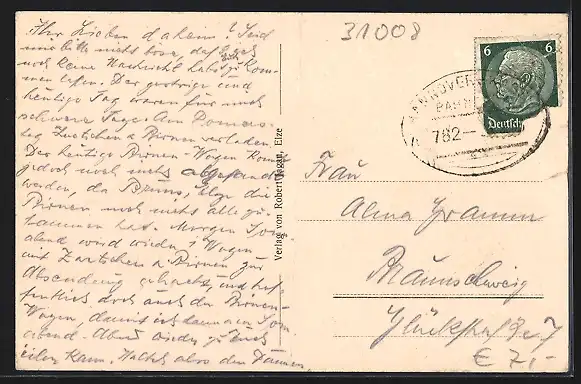 31008
Ihr Lieben daheim! Seid
mir bitte nicht böse, daß Ihr
noch keine Nachricht habt
lassen. Der gestrige und
heutige Tag waren für mich
schwere Tage. Am Donners-
tag Zwetschen u. Birnen verladen
Der heutige Birnen-Wagen konnte
jedoch noch nicht abgesandt
werden, da Bruns, Elze die
Birnen noch nicht alle zu-
sammen hat. Morgen Sonn-
abend wird wieder 1 Wagen
mit Zwetschen u. Birnen zur
Absendung gebracht und hof-
fentlich doch auch der Birnen-
Wagen, damit ich dann am Sonn
abend Abend wieder zu Euch
eilen kann. Haltet also den Daumen.
Verlag von Robert Elze
HANNOVER
BAHNPOST
782
6 6
Deutsches
Frau
Alma Gramm
Braunschweig
Glückstraße 7
€ 7,-